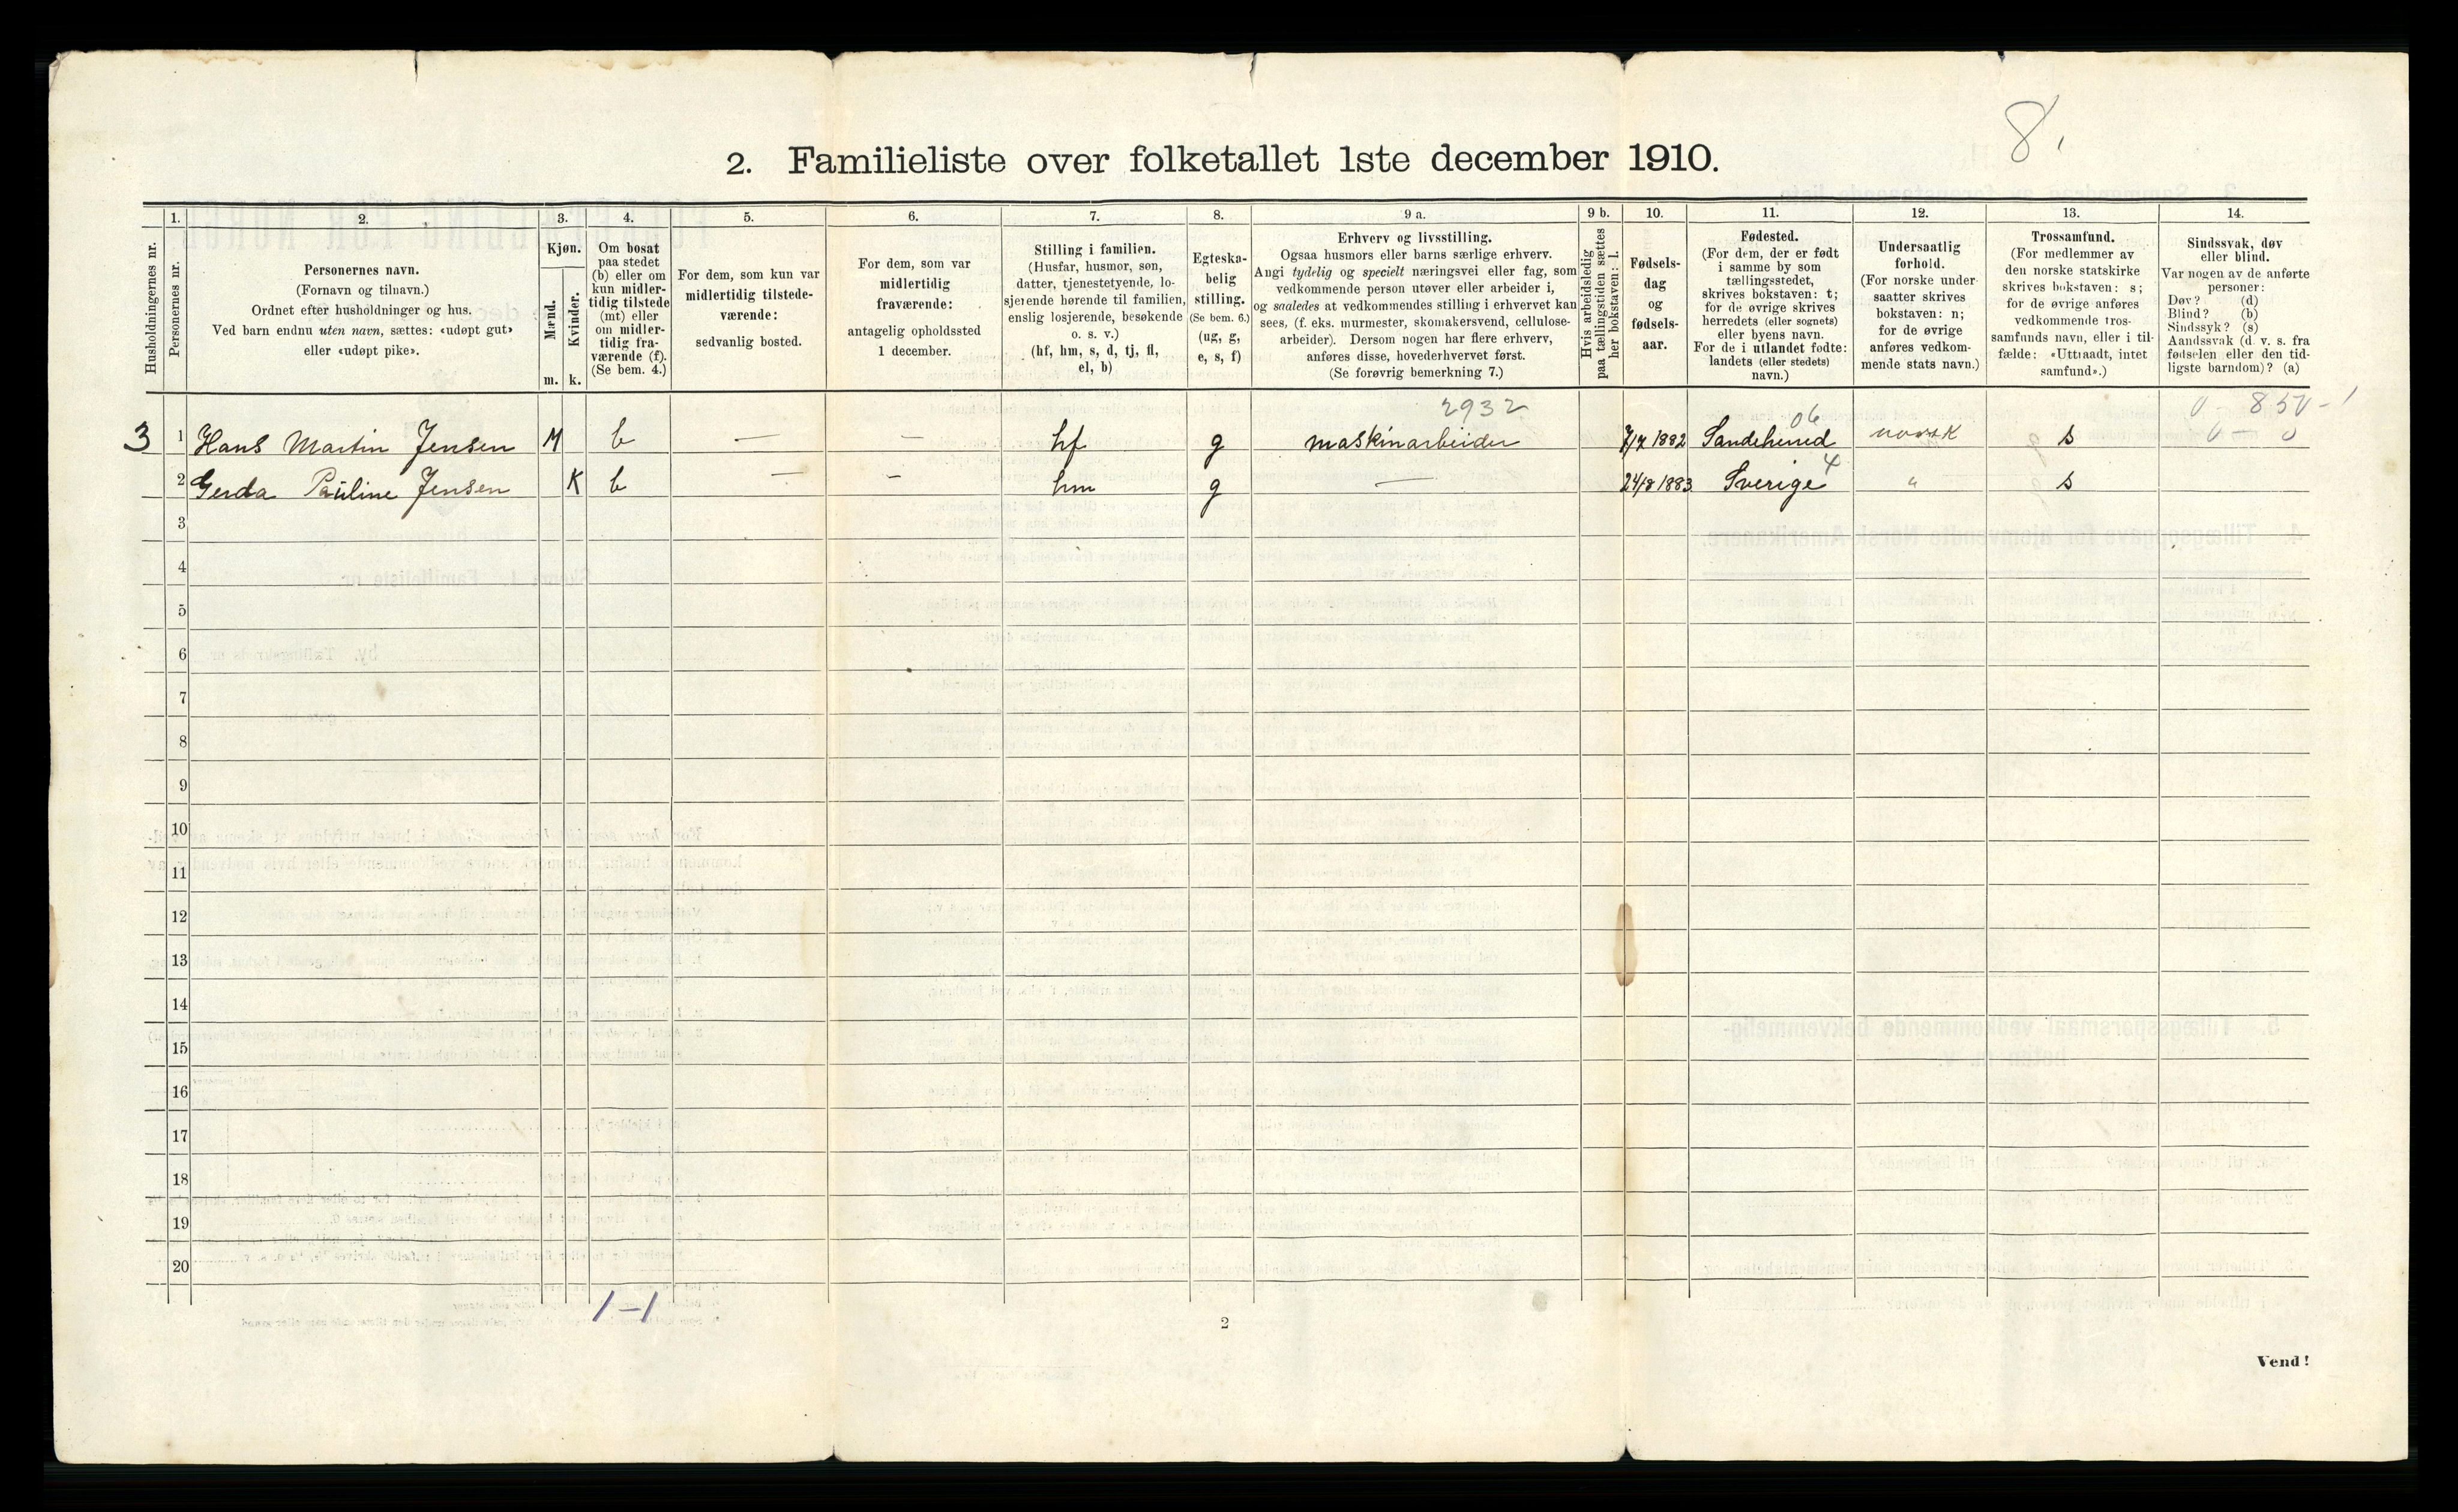 8.
2. Familieliste over folketallet 1ste december 1910.
Husholdningernes nr.
1.
Personernes nr.
2.
Personernes navn.
(Fornavn og tilnavn.)
Ordnet efter husholdninger og hus.
Ved barn endnu uten navn, sættes: «udøpt gut»
eller «udøpt pike».
3.
Kjøn.
Mænd.
Kvinder.
m. k.
4.
Om bosat
paa stedet
(b) eller om
kun midler-
tidig tilstede
(mt) eller
om midler-
tidig fra-
værende (f).
(Se bem. 4.)
5.
For dem, som kun var
midlertidig tilstede-
værende:
sedvanlig bosted.
6.
For dem, som var
midlertidig
fraværende:
antagelig opholdssted
1 december.
7.
Stilling i familien.
(Husfar, husmor, søn,
datter, tjenestetyende, lo-
sjerende hørende til familien,
enslig losjerende, besøkende
o. s. v.)
(hf, hm, s, d, tj, fl,
el, b)
8.
Egteska-
belig
stilling.
(Se bem. 6.)
(ug, g,
e, s, f)
9 a.
Erhverv og livsstilling.
Ogsaa husmors eller barns særlige erhverv.
Angi tydelig og specielt næringsvei eller fag, som
vedkommende person utøver eller arbeider i,
og saaledes at vedkommendes stilling i erhvervet kan
sees, (f. eks. murmester, skomakersvend, cellulose-
arbeider). Dersom nogen har flere erhverv,
anføres disse, hovederhvervet først.
(Se forøvrig bemerkning 7.)
9 b.
Hvis arbeidsledig
paa tællingstiden sættes
her bokstaven: l.
10.
Fødsels-
dag
og
fødsels-
aar.
11.
Fødested.
(For dem, der er født
i samme by som
tællingsstedet,
skrives bokstaven: t;
for de øvrige skrives
herredets (eller sognets)
eller byens navn.
For de i utlandet fødte:
landets (eller stedets)
navn.)
12.
Undersaatlig
forhold.
(For norske under-
saatter skrives
bokstaven: n;
for de øvrige
anføres vedkom-
mende stats navn.)
13.
Trossamfund.
(For medlemmer av
den norske statskirke
skrives bokstaven: s;
for de øvrige anføres
vedkommende tros-
samfunds navn, eller i til-
fælde: «Uttraadt, intet
samfund».)
14.
Sindssvak, døv
eller blind.
Var nogen av de anførte
personer:
Døv? (d)
Blind? (b)
Sindssyk? (s)
Aandssvak (d. v. s. fra
fødselen eller den tid-
ligste barndom)? (a)
2932 06
3 1 Hans Martin Jensen M b — — hf g maskinarbeider 1882 Sandeherred norsk s
4
2 Gerda Pauline Jensen K b — — hm g — 24/8 1883 Sverige " s
3
4
5
6
7
8
9
10
11
12
13
14
15
16
17
18
19
20
1-1
2
Vend!